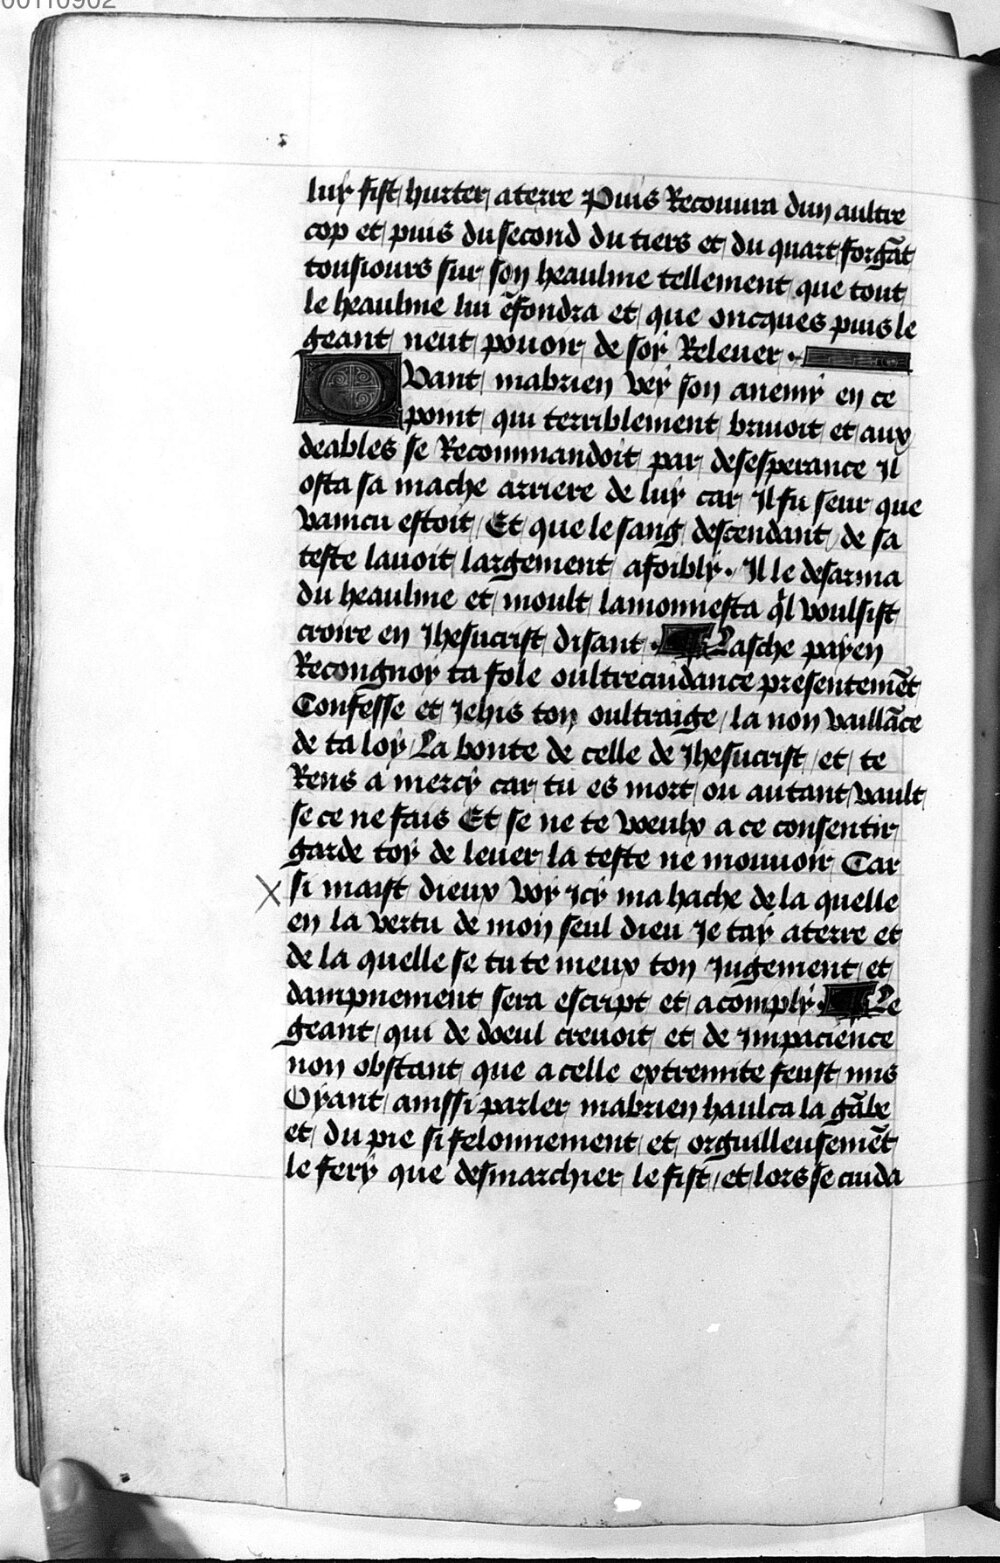 00110902
luy fist hurter a terre Puis Recouura dun aultre
cop et puis du second du tiers et du quart forgāt
tousiours sur son heaulme tellement que tout
le heaulme lui ēfondra et que oncques puis le
geant neut pouoir de soy Releuer .
Quant mabrien vey son anemy en ce
point qui terriblement bruioit et aux
deables se Recommandoit par desesperance Il
osta sa mache arriere de luy car Il fu seur que
vaincu estoit Et que le sang descendant de sa
teste lauoit largement afoibly . Il le desarma
du heaulme et moult lamonnesta ql voulsist
croire en Jhesucrist disant . Lasche payen
Recongnoy ta fole oultrecuidance presentemēt
Confesse et Jehis ton oultraige la non vaillāce
de ta loy La bonte de celle de Jhesucrist et te
Rens a mercy car tu es mort ou autant vault
se ce ne fais Et se ne te voeulx a ce consentir
garde toy de leuer la teste ne mouuoir Car
si maist dieux voy Icy ma hache de la quelle
en la vertu de mon seul dieu Je tay a terre et
de la quelle se tu te mieux ton Jugement et
dampnement sera escript et acomply . Le
geant qui de doeul creuoit et de Impacience
non obstant que a celle extremite feust mis
Oyant ainssi parler mabrien haulca la gābe
et du pie si felonnement et orguilleusemēt
le fery que desmarchier le fist et lors se cuida